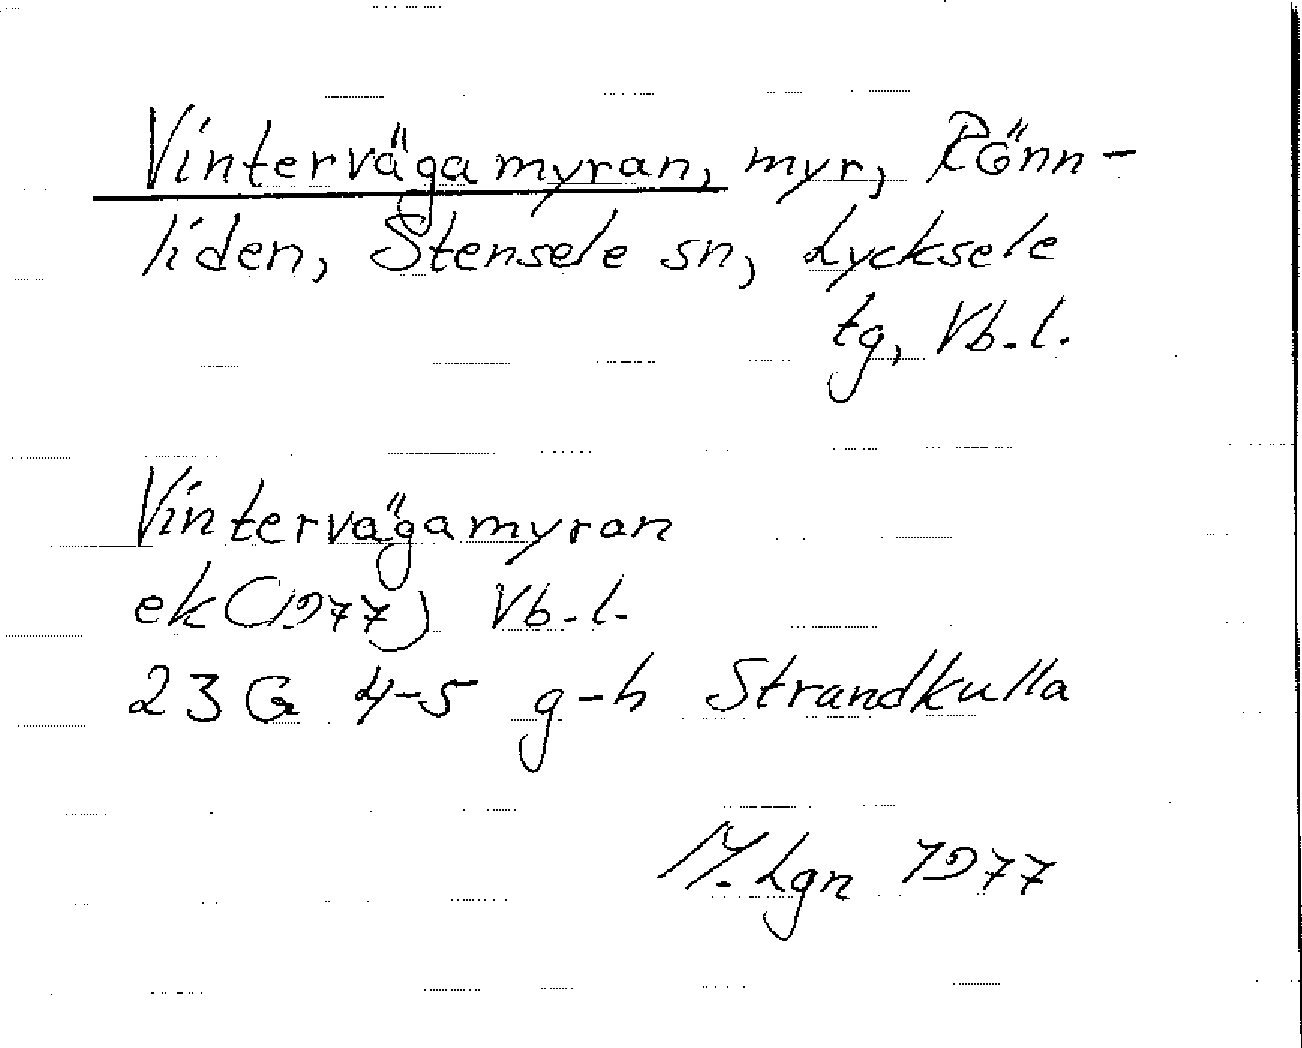 Vintervägamyran, myr, Rönn-
liden, Stensele sn, Lycksele
tg, Vb.l.
Vintervägamyran
ek (1977) Vb.l.
23 G 4-5 g-h Strandkulla
M. Lgn 1977